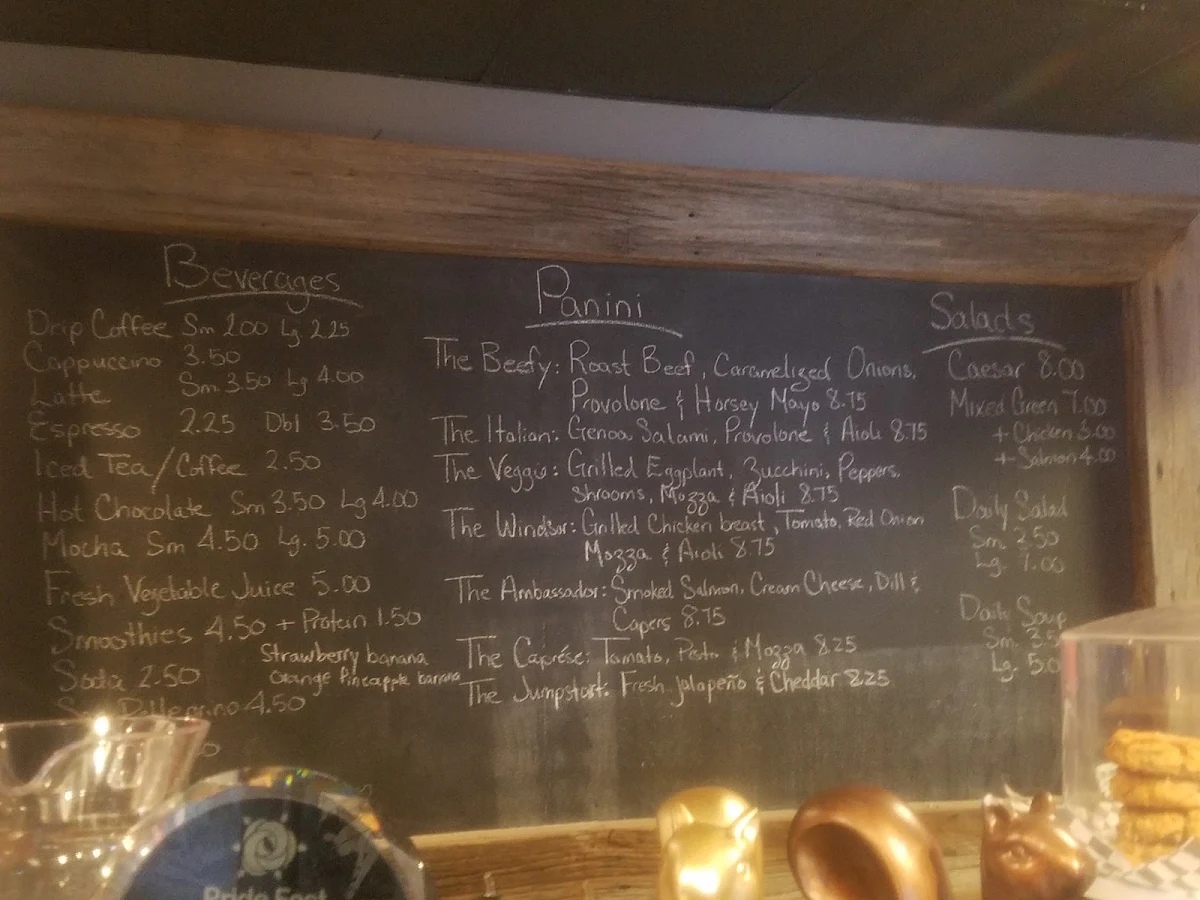 Beverages
Drip Coffee Sm 2.00 Lg 2.25
Cappuccino 3.50
Latte Sm 3.50 Lg 4.00
Espresso 2.25 Dbl 3.50
Iced Tea/Coffee 2.50
Hot Chocolate Sm 3.50 Lg 4.00
Mocha Sm 4.50 Lg. 5.00
Fresh Vegetable Juice 5.00
Smoothies 4.50 + Protein 1.50
Strawberry banana
Orange Pineapple banana
Soda 2.50
Pellegrino 4.50
Panini
The Beefy: Roast Beef, Caramelized Onions,
Provolone & Horsey Mayo 8.75
The Italian: Genoa Salami, Provolone & Aioli 8.75
The Veggie: Grilled Eggplant, Zucchini, Peppers,
Shrooms, Mozza & Aioli 8.75
The Windsor: Grilled Chicken beast, Tomato, Red Onion
Mozza & Aioli 8.75
The Ambassador: Smoked Salmon, Cream Cheese, Dill &
Capers 8.75
The Caprése: Tomato, Pesto & Mozza 8.25
The Jumpstart: Fresh jalapeño & Cheddar 8.25
Salads
Caesar 8.00
Mixed Green 7.00
+ Chicken 3.00
+ Salmon 4.00
Daily Salad
Sm. 2.50
Lg. 7.00
Daily Soup
Sm. 3.5
Lg. 5.0
Pride Fest